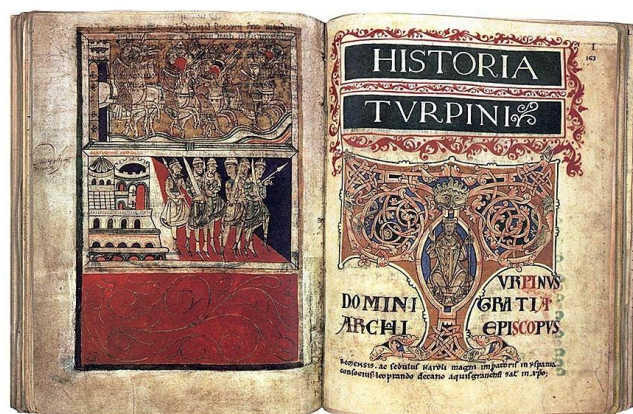 I
163
HISTORIA
TVRPINI
URPINUS
DOMINI GRATIA
ARCHI EPISCOPVS
REMENSIS. ac sedulus karoli magni imperatoris in yspania
consocius. leoprando decano aquisgranensi sat in xpo;